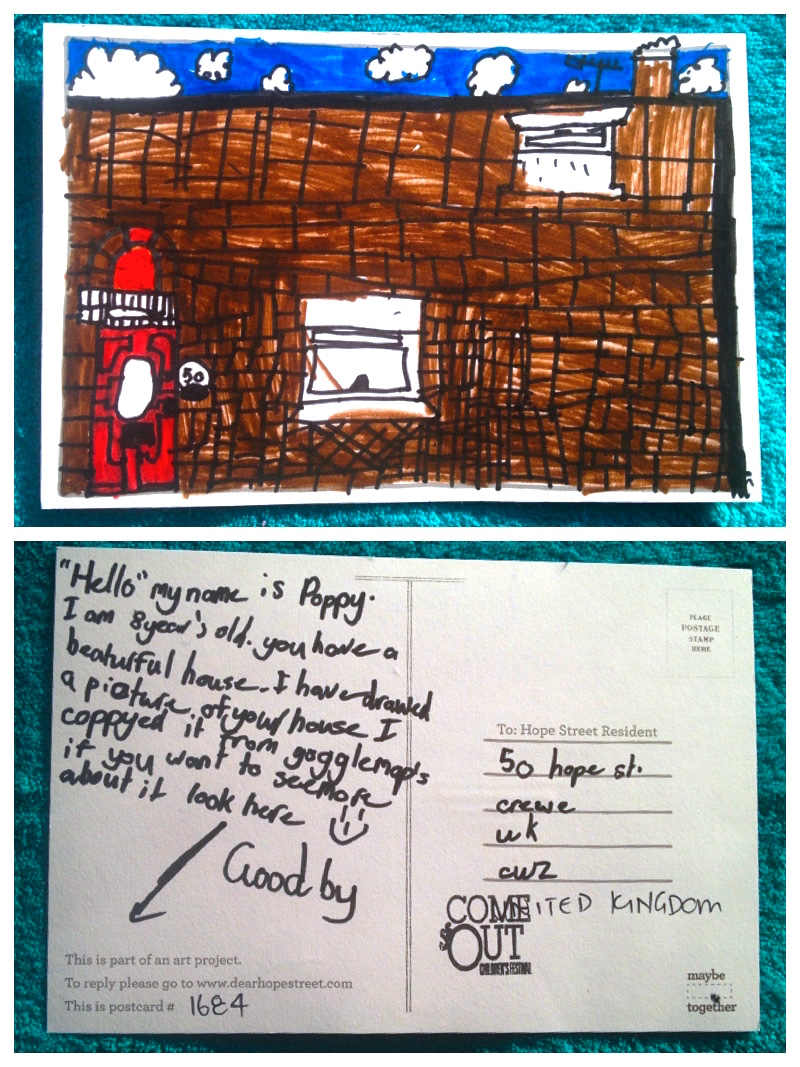 50
"Hello" my name is Poppy.
I am 8year's old. you have a
beaturful house. I have drawed
a picture of your house I
coppyed it from gogglemap's
if you want to see more
about it look here
Good by
This is part of an art project.
To reply please go to www.dearhopestreet.com
This is postcard # 1684
PLACE
POSTAGE
STAMP
HERE
To: Hope Street Resident
50 hope st.
crewe
uk
cw2
UNITED KINGDOM
COME
OUT
CHILDREN'S FESTIVAL
maybe
together